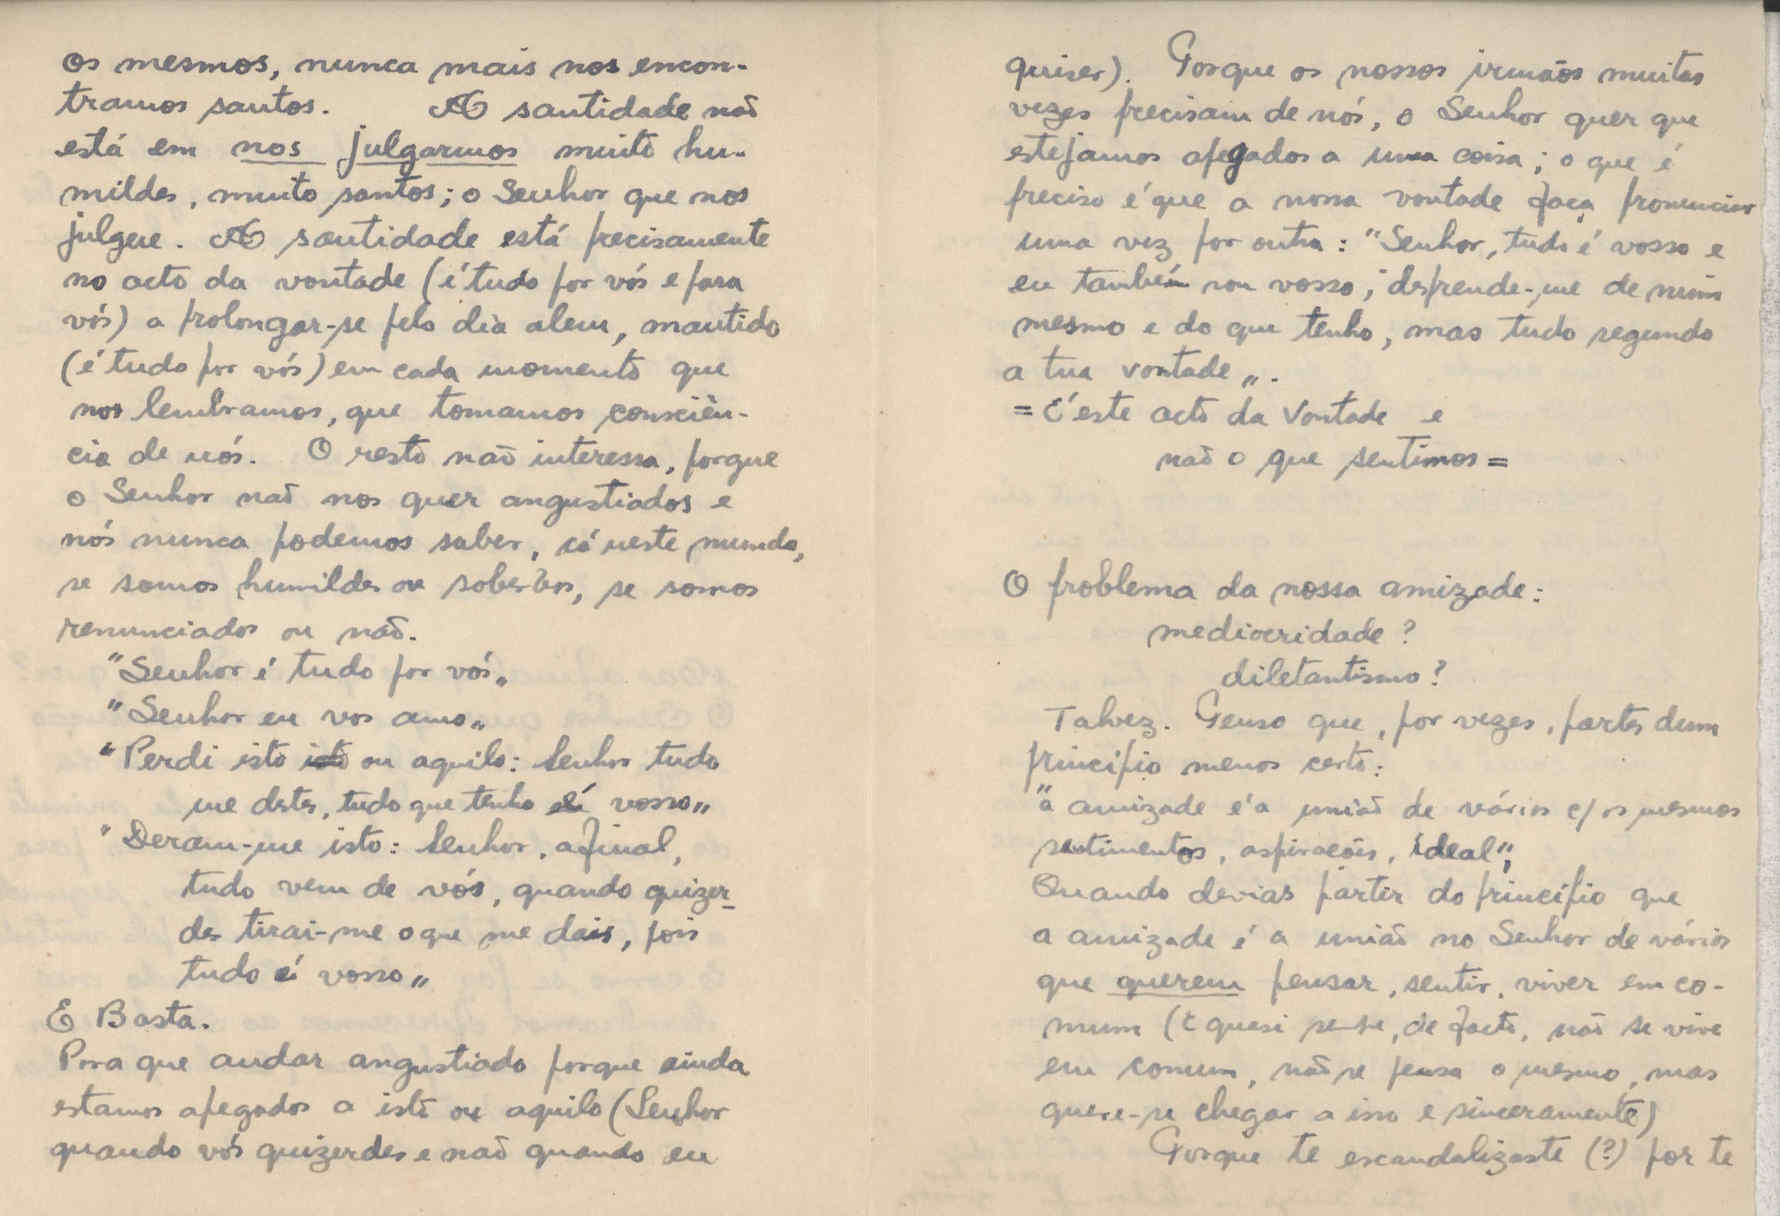 os mesmos, nunca mais nos encon-
tramos santos. A santidade não
está em nos julgarmos muito hu-
mildes, muito santos; o Senhor que nos
julgue. A santidade está precisamente
no acto da vontade (é tudo por vós e para
vós) a prolongar-se pelo dia alem, mantido
(é tudo por vós) em cada momento que
nos lembramos, que tomamos consciên-
cia de nós. O resto não interessa, porque
o Senhor não nos quer angustiados e
nós nunca podemos saber, cá neste mundo,
se somos humildes ou soberbos, se somos
renunciados ou não.
"Senhor é tudo por vós"
"Senhor eu vos amo"
"Perdi isto isto ou aquilo: Senhor tudo
me destes, tudo que tenho é vosso"
"Deram-me isto: Senhor, afinal,
tudo vem de vós, quando quizer-
des tirai-me o que me dais, pois
tudo é vosso"
E Basta.
Para que andar angustiado porque ainda
estamos apegados a isto ou aquilo (Senhor
quando vós quizerdes e não quando eu
quiser). Porque os nossos irmãos muitas
vezes precisam de nós, o Senhor quer que
estejamos apegados a uma coisa; o que é
preciso é que a nossa vontade faça pronunciar
uma vez por outra: "Senhor, tudo é vosso e
eu também sou vosso; desprende-me de mim
mesmo e do que tenho, mas tudo segundo
a tua vontade".
= É este acto da Vontade e
não o que sentimos =
O problema da nossa amizade:
mediocridade?
diletantismo?
Talvez. Penso que, por vezes, partes dum
princípio menos certo:
"a amizade é a união de vários c/ os mesmos
sentimentos, aspirações, ideal";
Quando devias partir do princípio que
a amizade é a união no Senhor de vários
que querem pensar, sentir, viver em co-
mum (E quasi sempre, de facto, não se vive
em comum, não se pensa o mesmo, mas
quere-se chegar a isso e sinceramente)
Porque te escandalizaste (?) por te